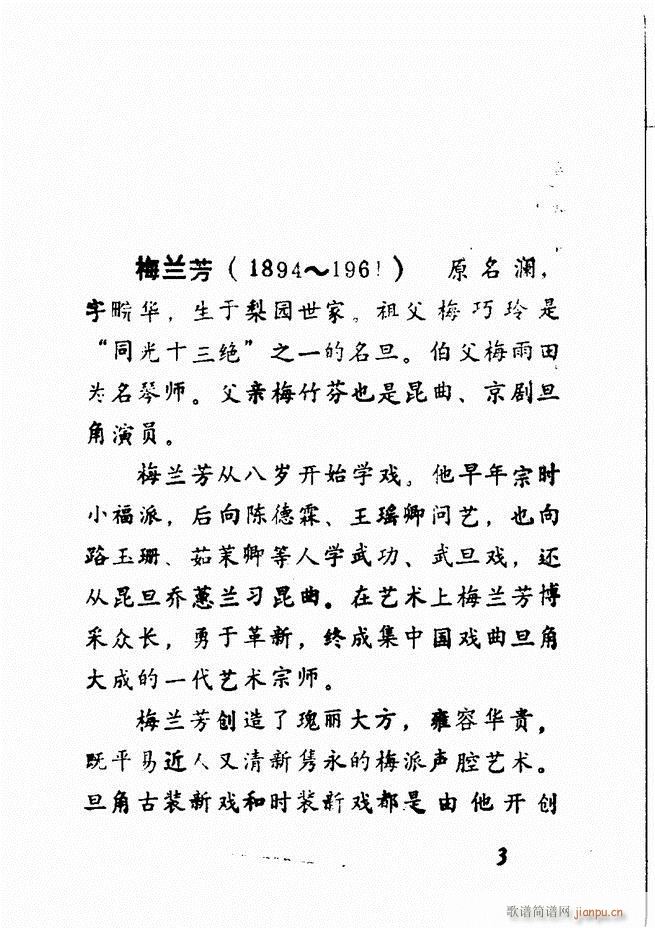 梅兰芳（1894～1961） 原名澜，
字畹华，生于梨园世家。祖父梅巧玲是
“同光十三绝”之一的名旦。伯父梅雨田
为名琴师。父亲梅竹芬也是昆曲、京剧旦
角演员。
梅兰芳从八岁开始学戏，他早年宗时
小福派，后向陈德霖、王瑶卿问艺，也向
路玉珊、茹莱卿等人学武功、武旦戏，还
从昆旦乔蕙兰习昆曲。在艺术上梅兰芳博
采众长，勇于革新，终成集中国戏曲旦角
大成的一代艺术宗师。
梅兰芳创造了瑰丽大方，雍容华贵，
既平易近人又清新隽永的梅派声腔艺术。
旦角古装新戏和时装新戏都是由他开创
3
歌谱简谱网 jianpu.cn